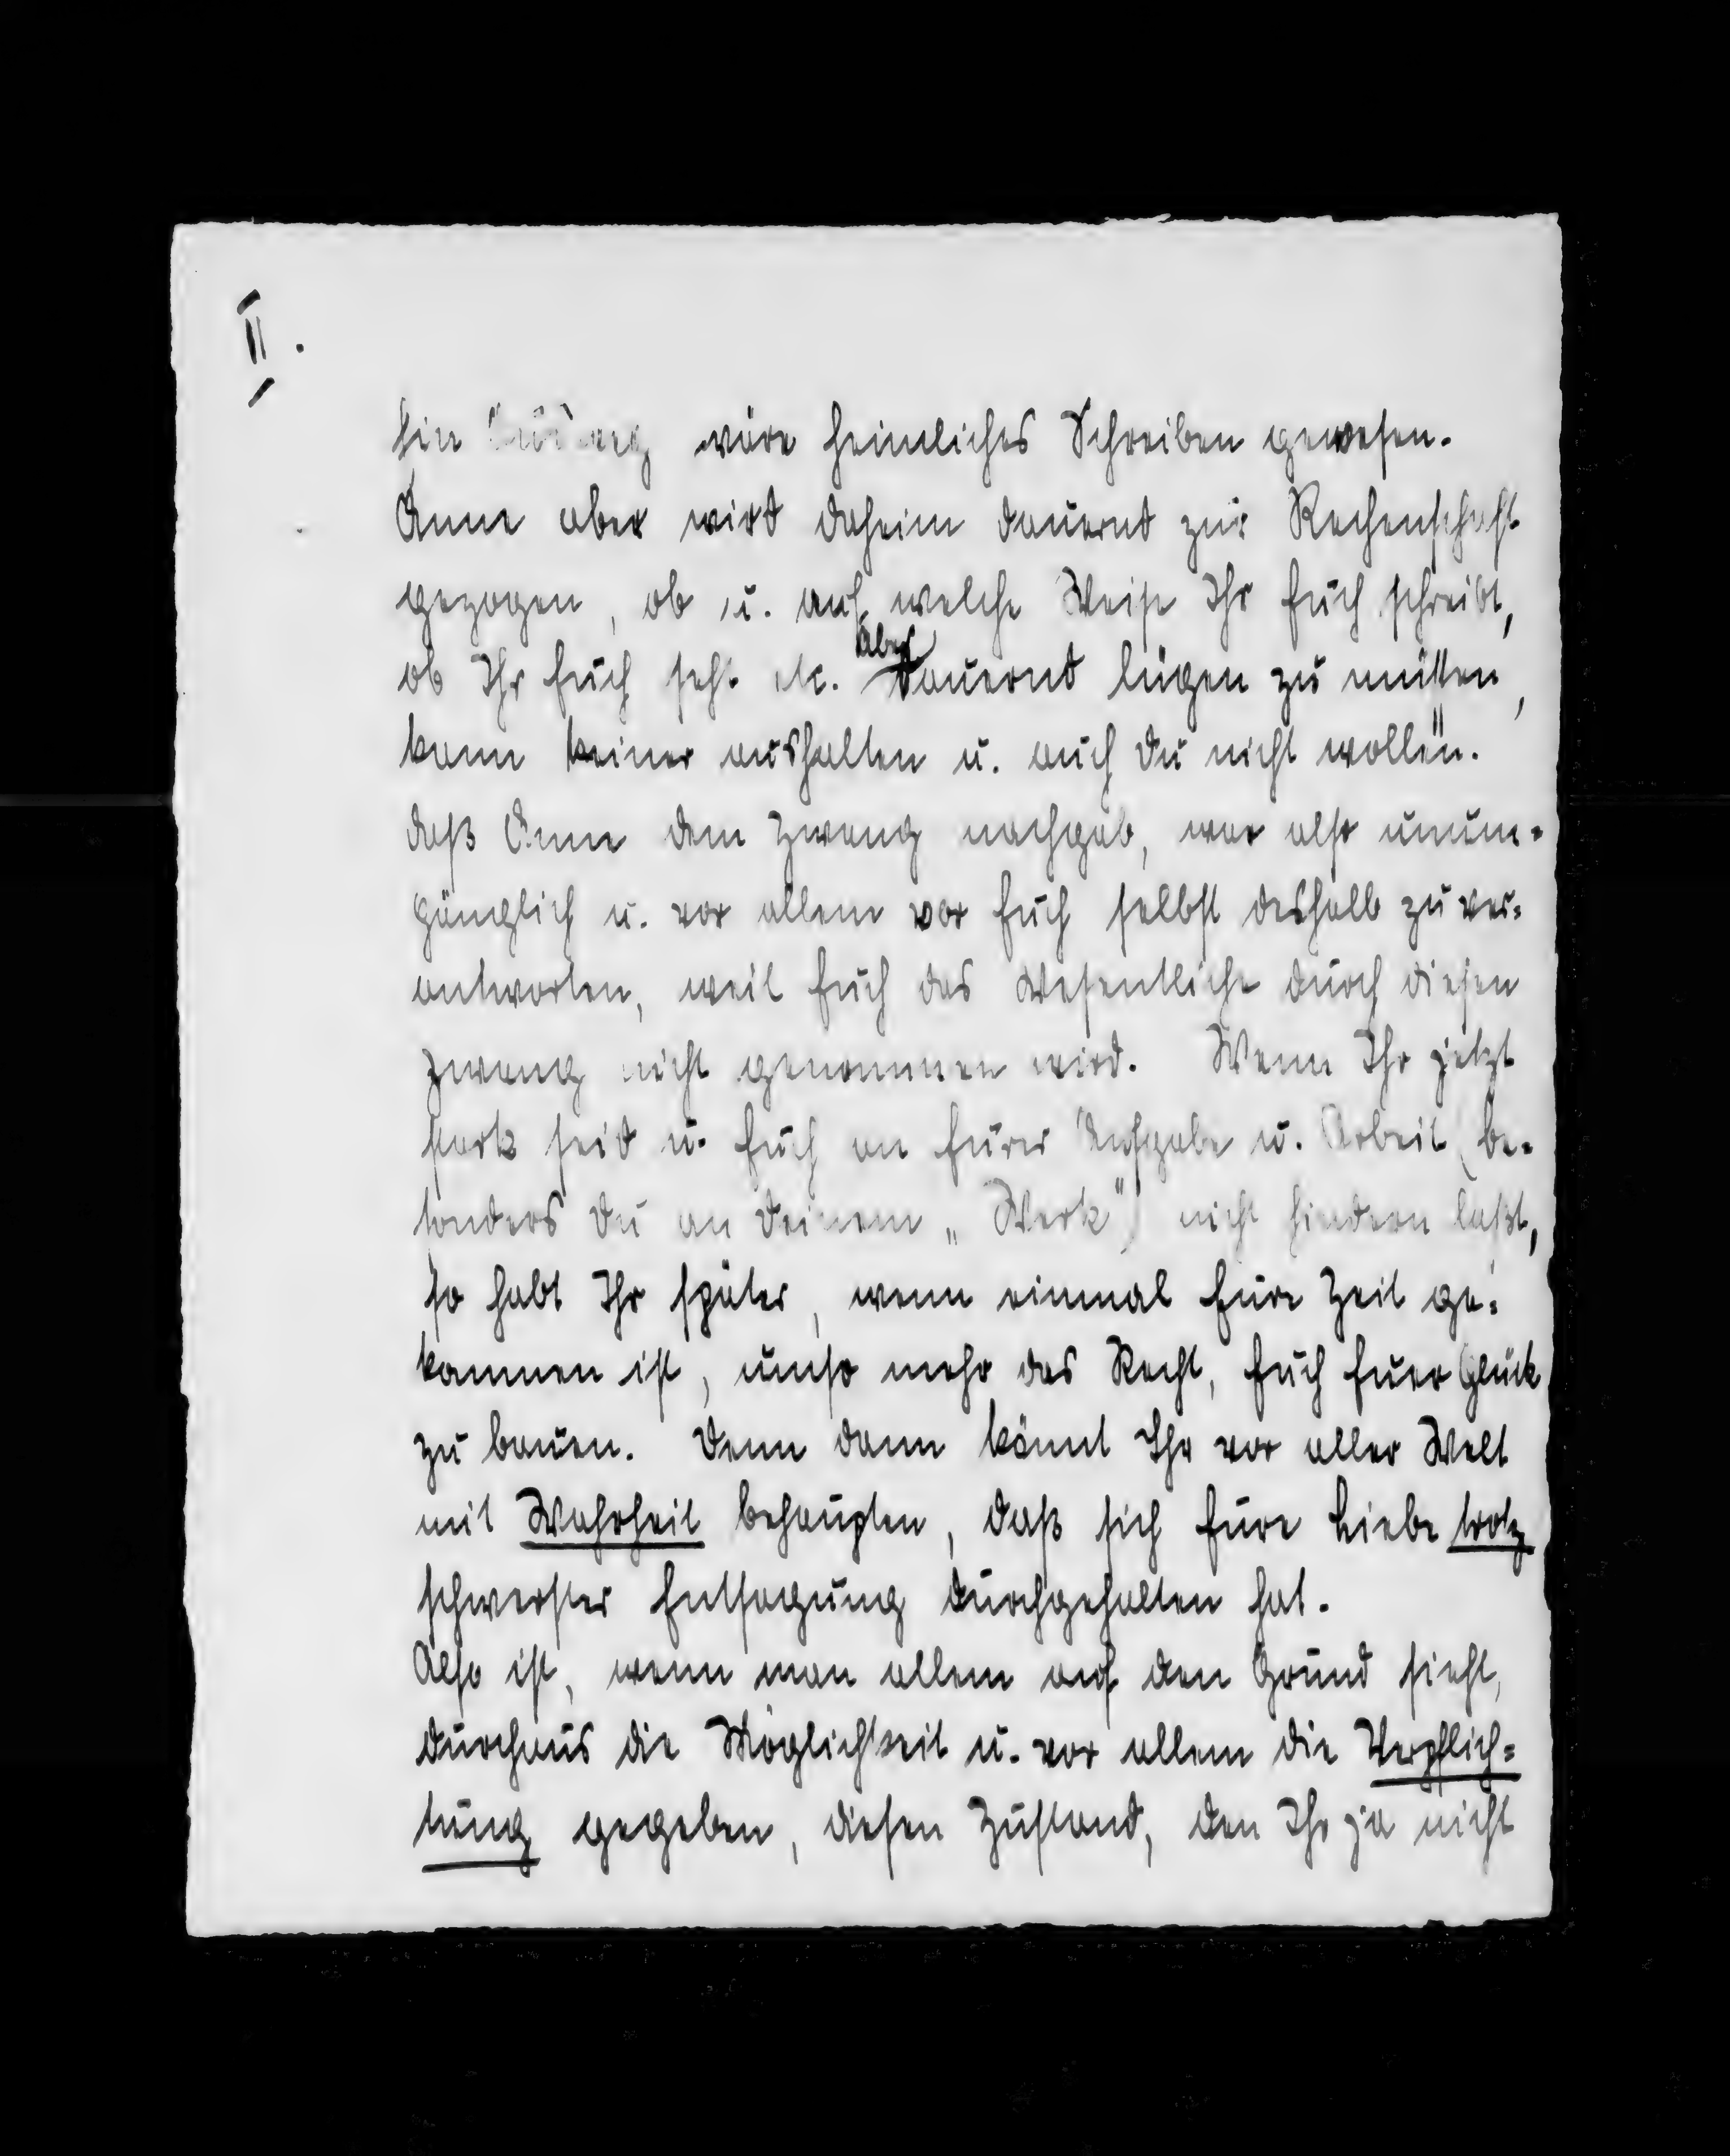 II.
Ein Ausweg wäre heimliches Schreiben gewesen.
Änne aber wird daheim dauernd zur Rechenschaft
gezogen, ob u. auf welche Weise Ihr Euch schreibt,
ob Ihr Euch seht etc. Aber dauernd lügen zu müssen,
kann keiner aushalten u. auch Du nicht wollen.
daß Änne dem Zwang nachgab, war also unum=
gänglich u. vor allem vor Euch selbst deshalb zu ver=
antworten, weil Euch das Wesentliche durch diesen
Zwang nicht genommen wird. Wenn Ihr jetzt
stark seid u. Euch an Eurer Aufgabe u. Arbeit (be=
sonders Du an Deinem „Werk") nicht hindern laßt,
so habt Ihr später, wenn einmal Eure Zeit ge=
kommen ist, umso mehr das Recht, Euch Euer Glück
zu bauen. Denn dann könnt Ihr vor aller Welt
mit Wahrheit behaupten, daß sich Eure Liebe trotz
schwerster Entsagung durchgehalten hat.
Also ist, wenn man allem auf den Grund sieht,
durchaus die Möglichkeit u. vor allem die Verpflich=
tung gegeben, diesen Zustand, den Ihr ja nicht